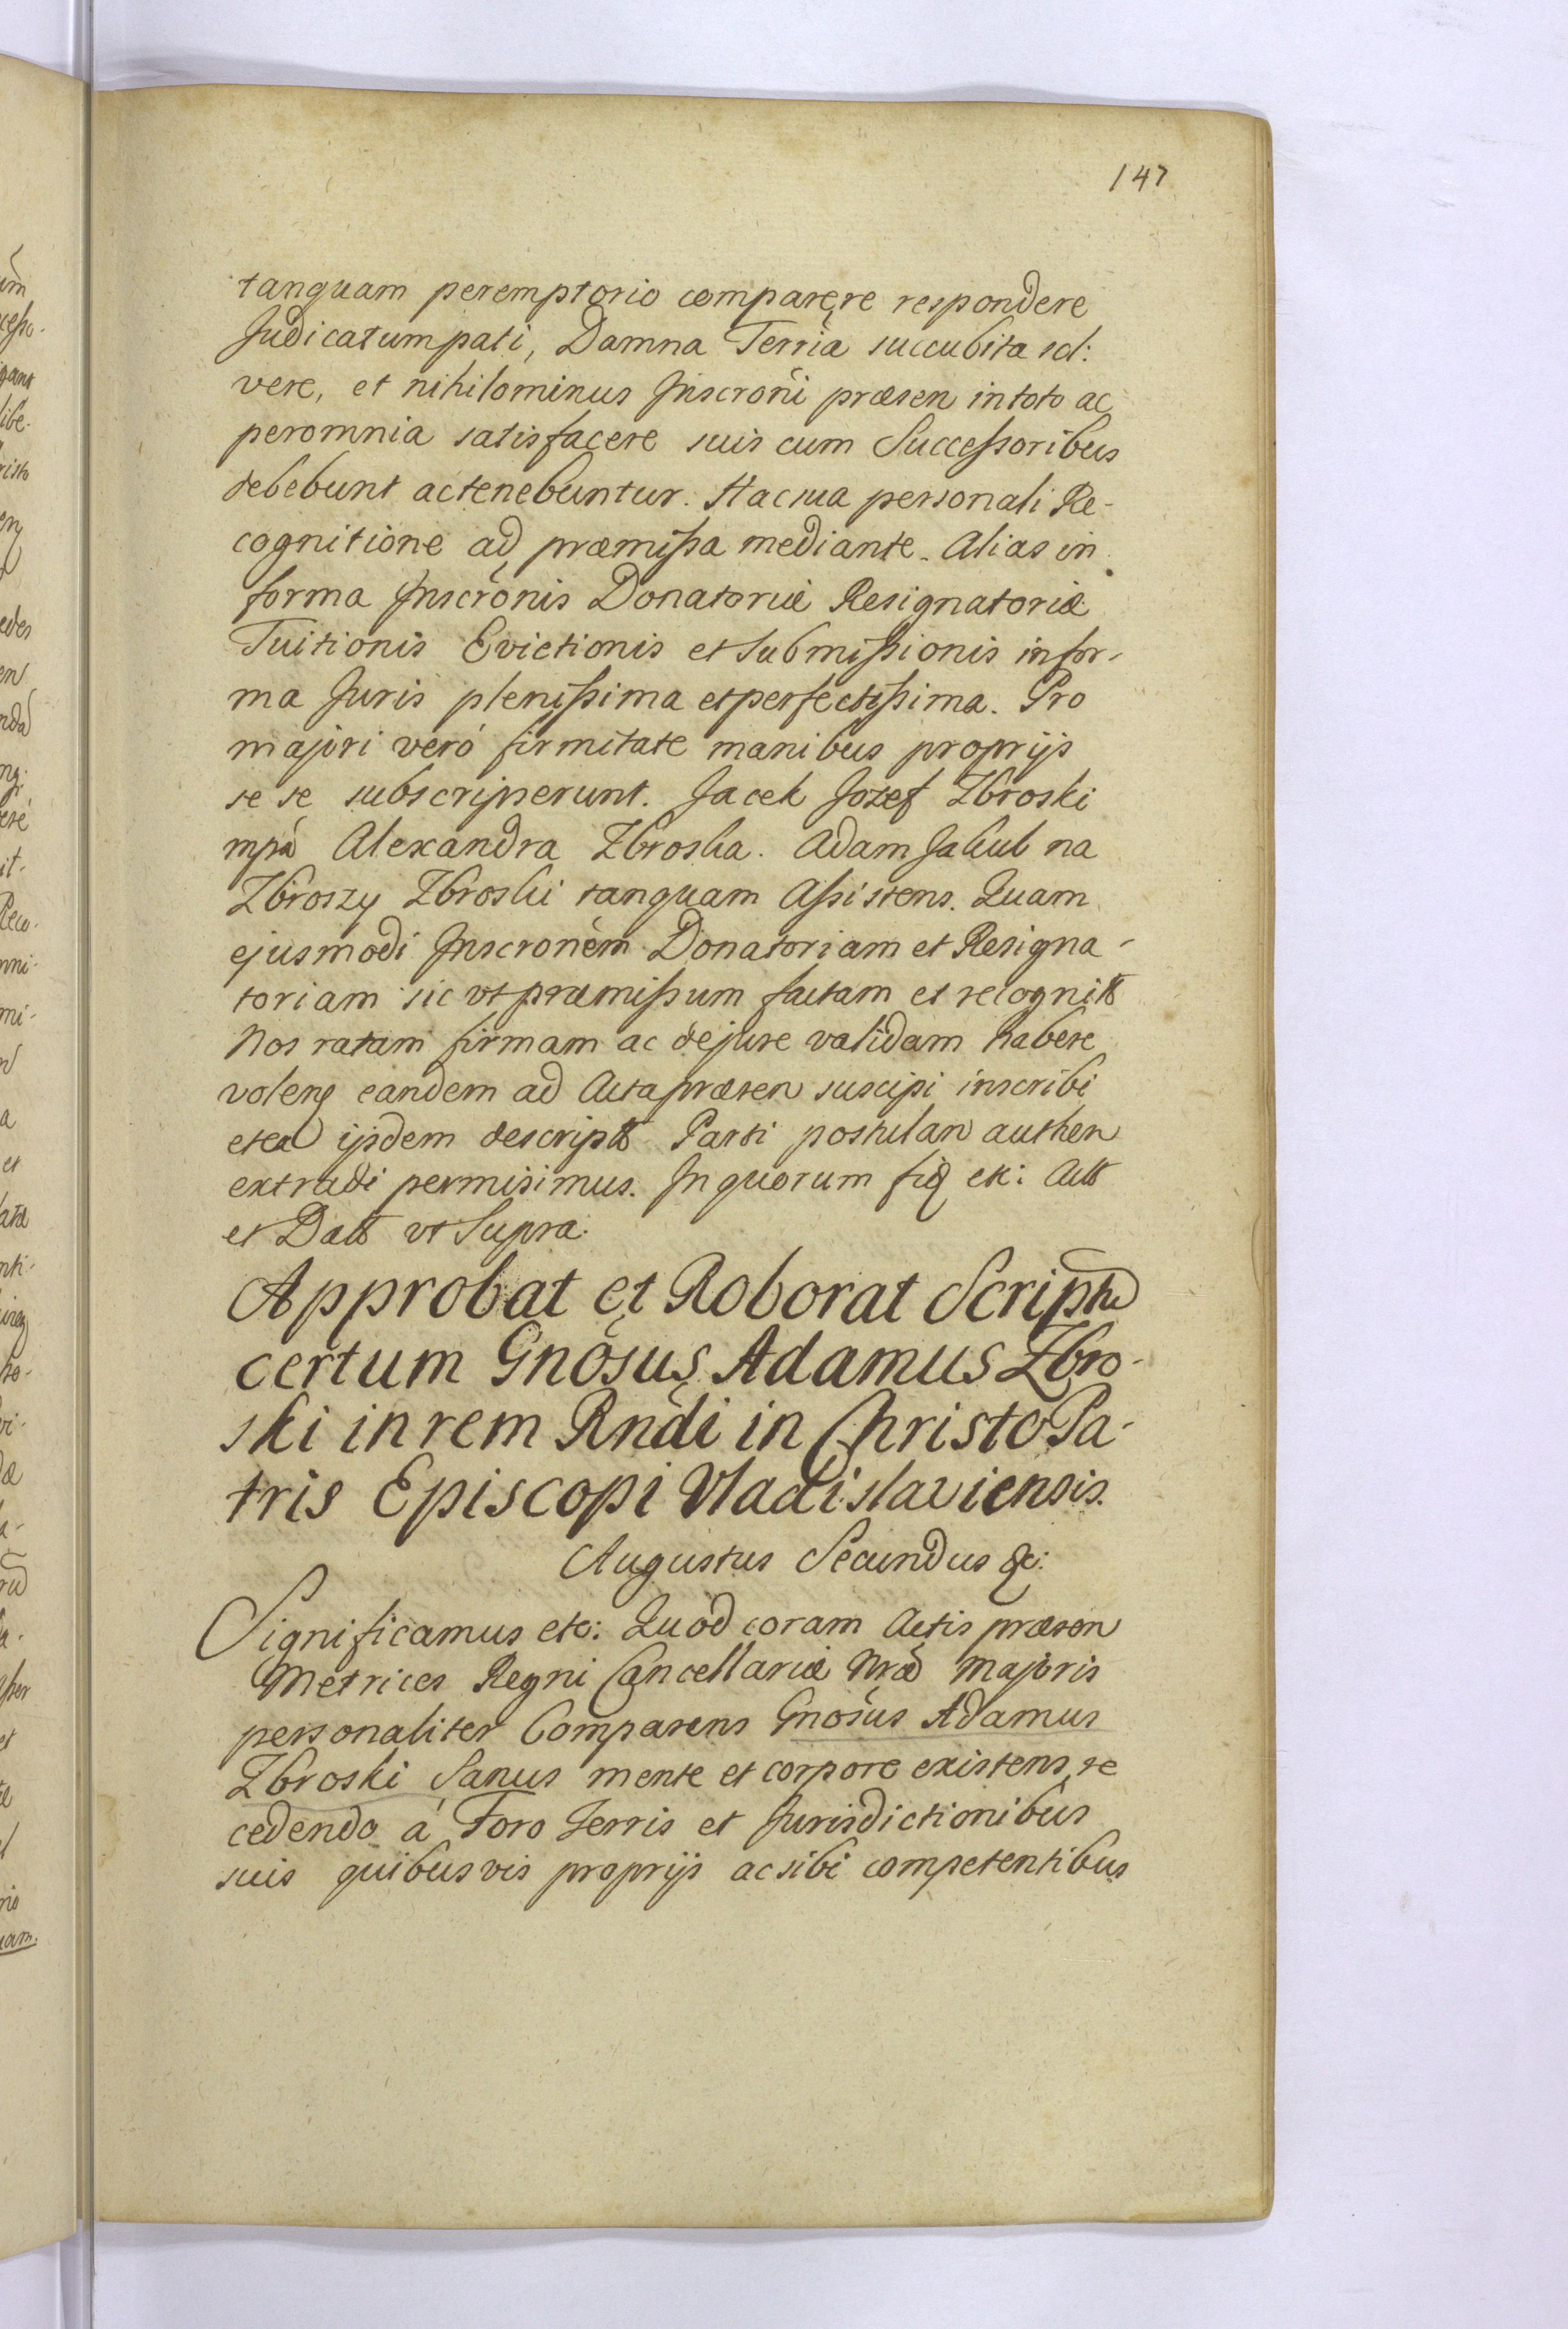 147
tanquam peremptorio comparere respondere
Judicatum pati, Damna Terria succubita sol:
vere, et nihilominus Inscroni præsen in toto ac
peromnia satisfacere suis cum Successoribus
debebunt ac tenebuntur. Hac sua personali Re-
cognitione ad præmissa mediante. Alias in
forma Inscronis Donatoriæ Resignatoriæ
Tuitionis Evictionis et Submissionis in for-
ma Juris plenissima et perfectissima. Pro
majori veró firmitate manibus proprijs
se se subscripserunt. Jacek Jozef Zbroski
mpa Alexandra Zbroska. Adam Jakub na
Zbroszy Zbroski tanquam Assistens. Quam
ejusmodi Inscronem Donatoriam et Resigna-
toriam sic vt præmissum factam et recognitt
Nos ratam firmam ac dejure validam habere
volens eandem ad Acta præsen suscipi inscribi
et ex ijsdem descriptt Parti postulan authen
extradi permisimus. In quorum fid etc: Actt
et Datt vt Supra.
Approbat et Roborat Scriptu
certum Gnosus Adamus Zbro-
ski in rem Rndi in Christo Pa-
tris Episcopi Vladislaviensis.
Augustus Secundus &c:
Significamus etc: Quod coram Actis præsen
Metrices Regni Cancellariæ Nræ Majoris
personaliter Comparens Gnosus Adamus
Zbroski Sanus mente et corpore existens, re
cedendo á Foro Terris et Jurisdictionibus
suis quibusvis proprijs ac sibi competentibus